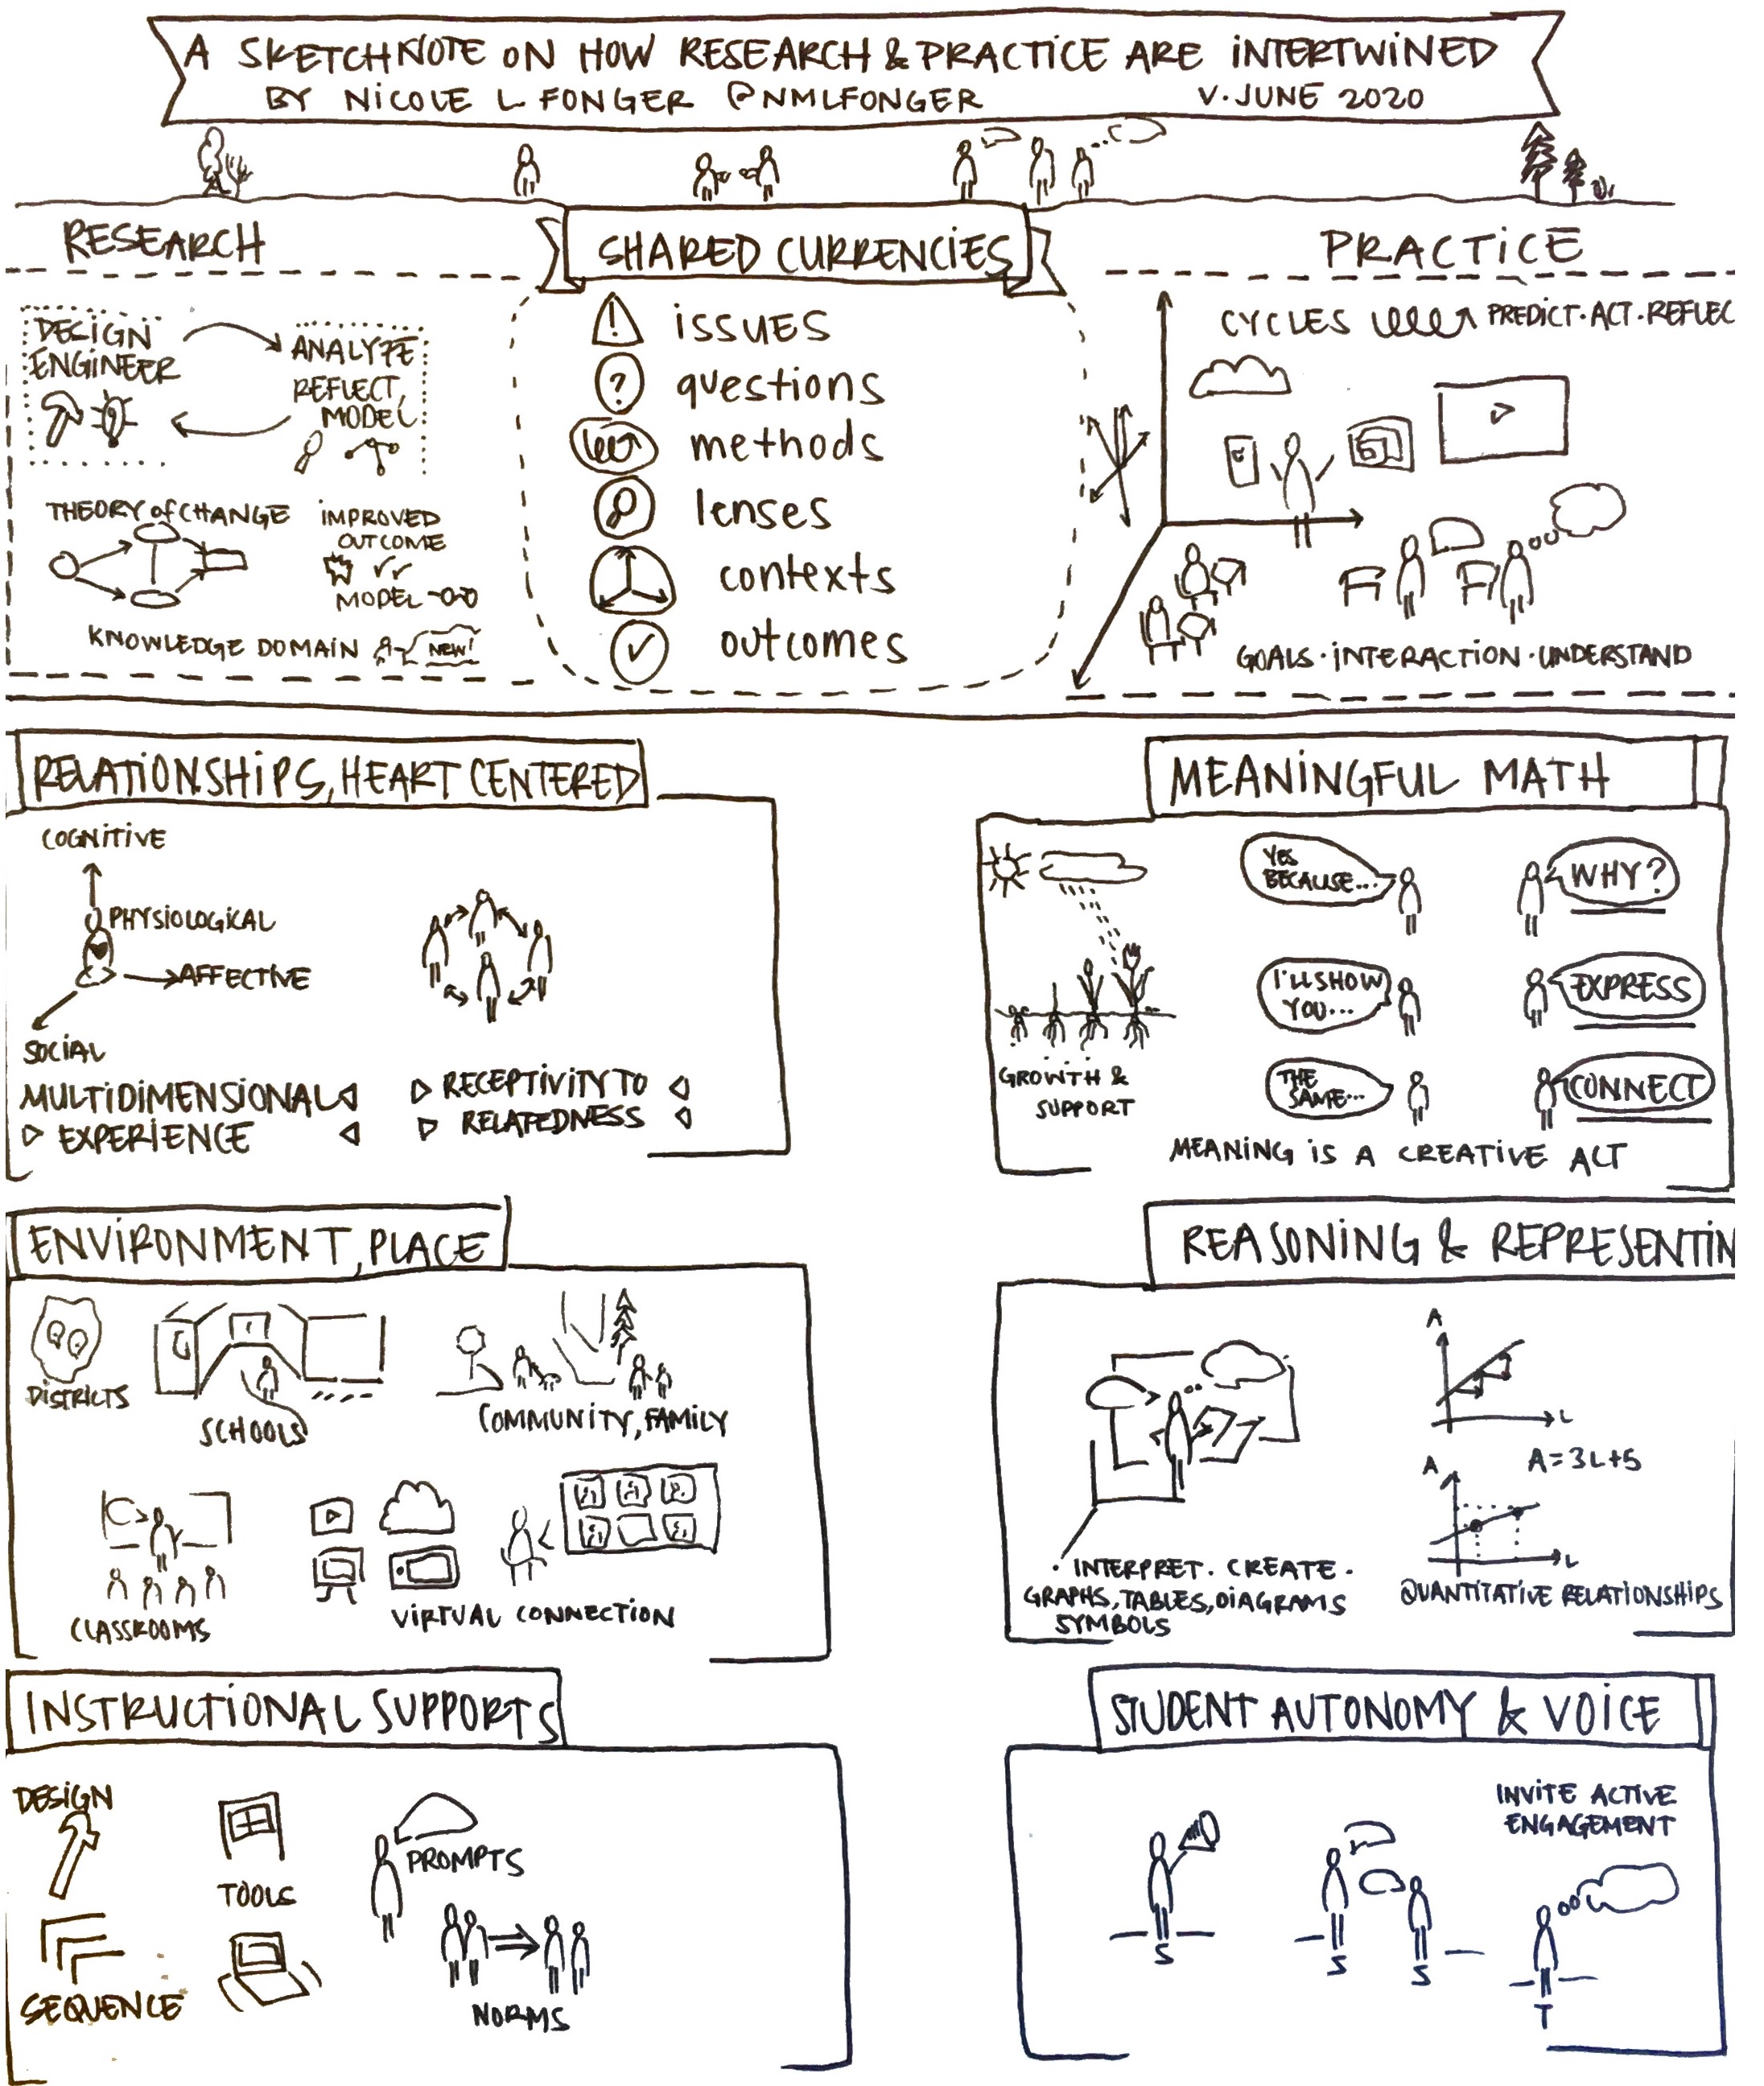 A SKETCHNOTE ON HOW RESEARCH & PRACTICE ARE INTERTWINED
BY NICOLE L FONGER @NMLFONGER V. JUNE 2020
RESEARCH
DESIGN
ENGINEER
ANALYZE
REFLECT,
MODEL
THEORY of CHANGE
IMPROVED
OUTCOME
MODEL
KNOWLEDGE DOMAIN
NEW!
SHARED CURRENCIES
! issues
? questions
methods
lenses
contexts
outcomes
PRACTICE
CYCLES PREDICT·ACT·REFLEC
GOALS·INTERACTION·UNDERSTAND
RELATIONSHIPS, HEART CENTERED
COGNITIVE
PHYSIOLOGICAL
AFFECTIVE
SOCIAL
MULTIDIMENSIONAL
EXPERIENCE
RECEPTIVITY TO
RELATEDNESS
MEANINGFUL MATH
YES
BECAUSE...
WHY?
I'LL SHOW
YOU...
EXPRESS
THE
SAME...
CONNECT
GROWTH &
SUPPORT
MEANING IS A CREATIVE ACT
ENVIRONMENT, PLACE
DISTRICTS
SCHOOLS
COMMUNITY, FAMILY
CLASSROOMS
VIRTUAL CONNECTION
REASONING & REPRESENTIN
A
L
A=3L+5
A
L
·INTERPRET·CREATE·
GRAPHS, TABLES, DIAGRAMS
SYMBOLS
QUANTITATIVE RELATIONSHIPS
INSTRUCTIONAL SUPPORTS
DESIGN
SEQUENCE
TOOLS
PROMPTS
NORMS
STUDENT AUTONOMY & VOICE
INVITE ACTIVE
ENGAGEMENT
S
S
S
T